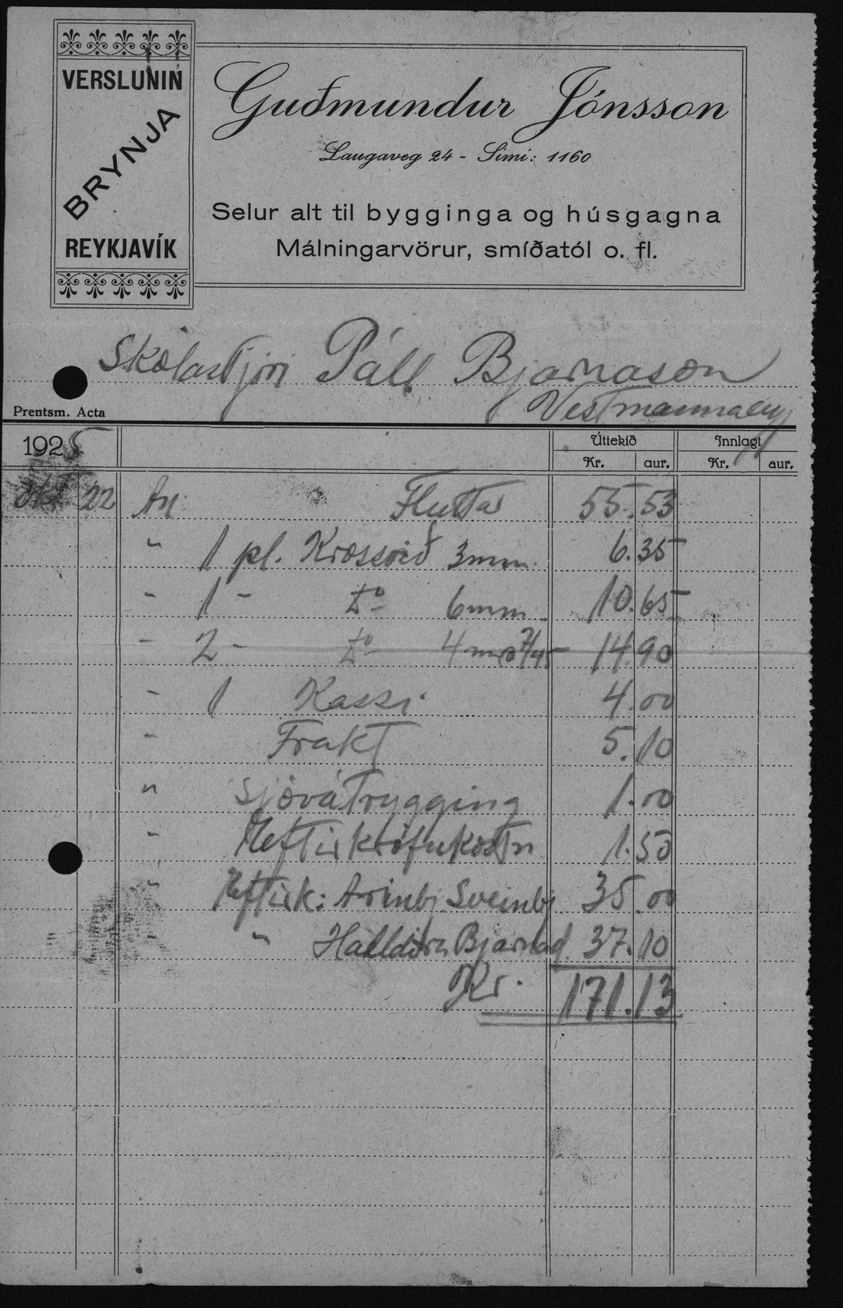 VERSLUNIN
BRYNJA
REYKJAVÍK
Guðmundur Jónsson
Laugaveg 24 - Sími: 1160
Selur alt til bygginga og húsgagna
Málningarvörur, smíðatól o. fl.
Skólastjóri Páll Bjarnason
Vestmannaeyj
Prentsm. Acta
1925 Úttekið Innlagt
Kr. aur. Kr. aur.
Okt 22 An Flutta 55.53
" 1 pl. Krossvið 3mm. 6.35
" 1 " Do 6mm 10.65
" 2 - Do 4mm 7/45 14.90
" 1 Kassi 4.00
" Frakt 5.10
" Sjóvátrygging 1.00
" Eftirkröfukostn 1.50
" Eftirk: Arinbj Sveinbj 35.00
" " Halldóra Bjarnad. 37.10
Kr. 171.13